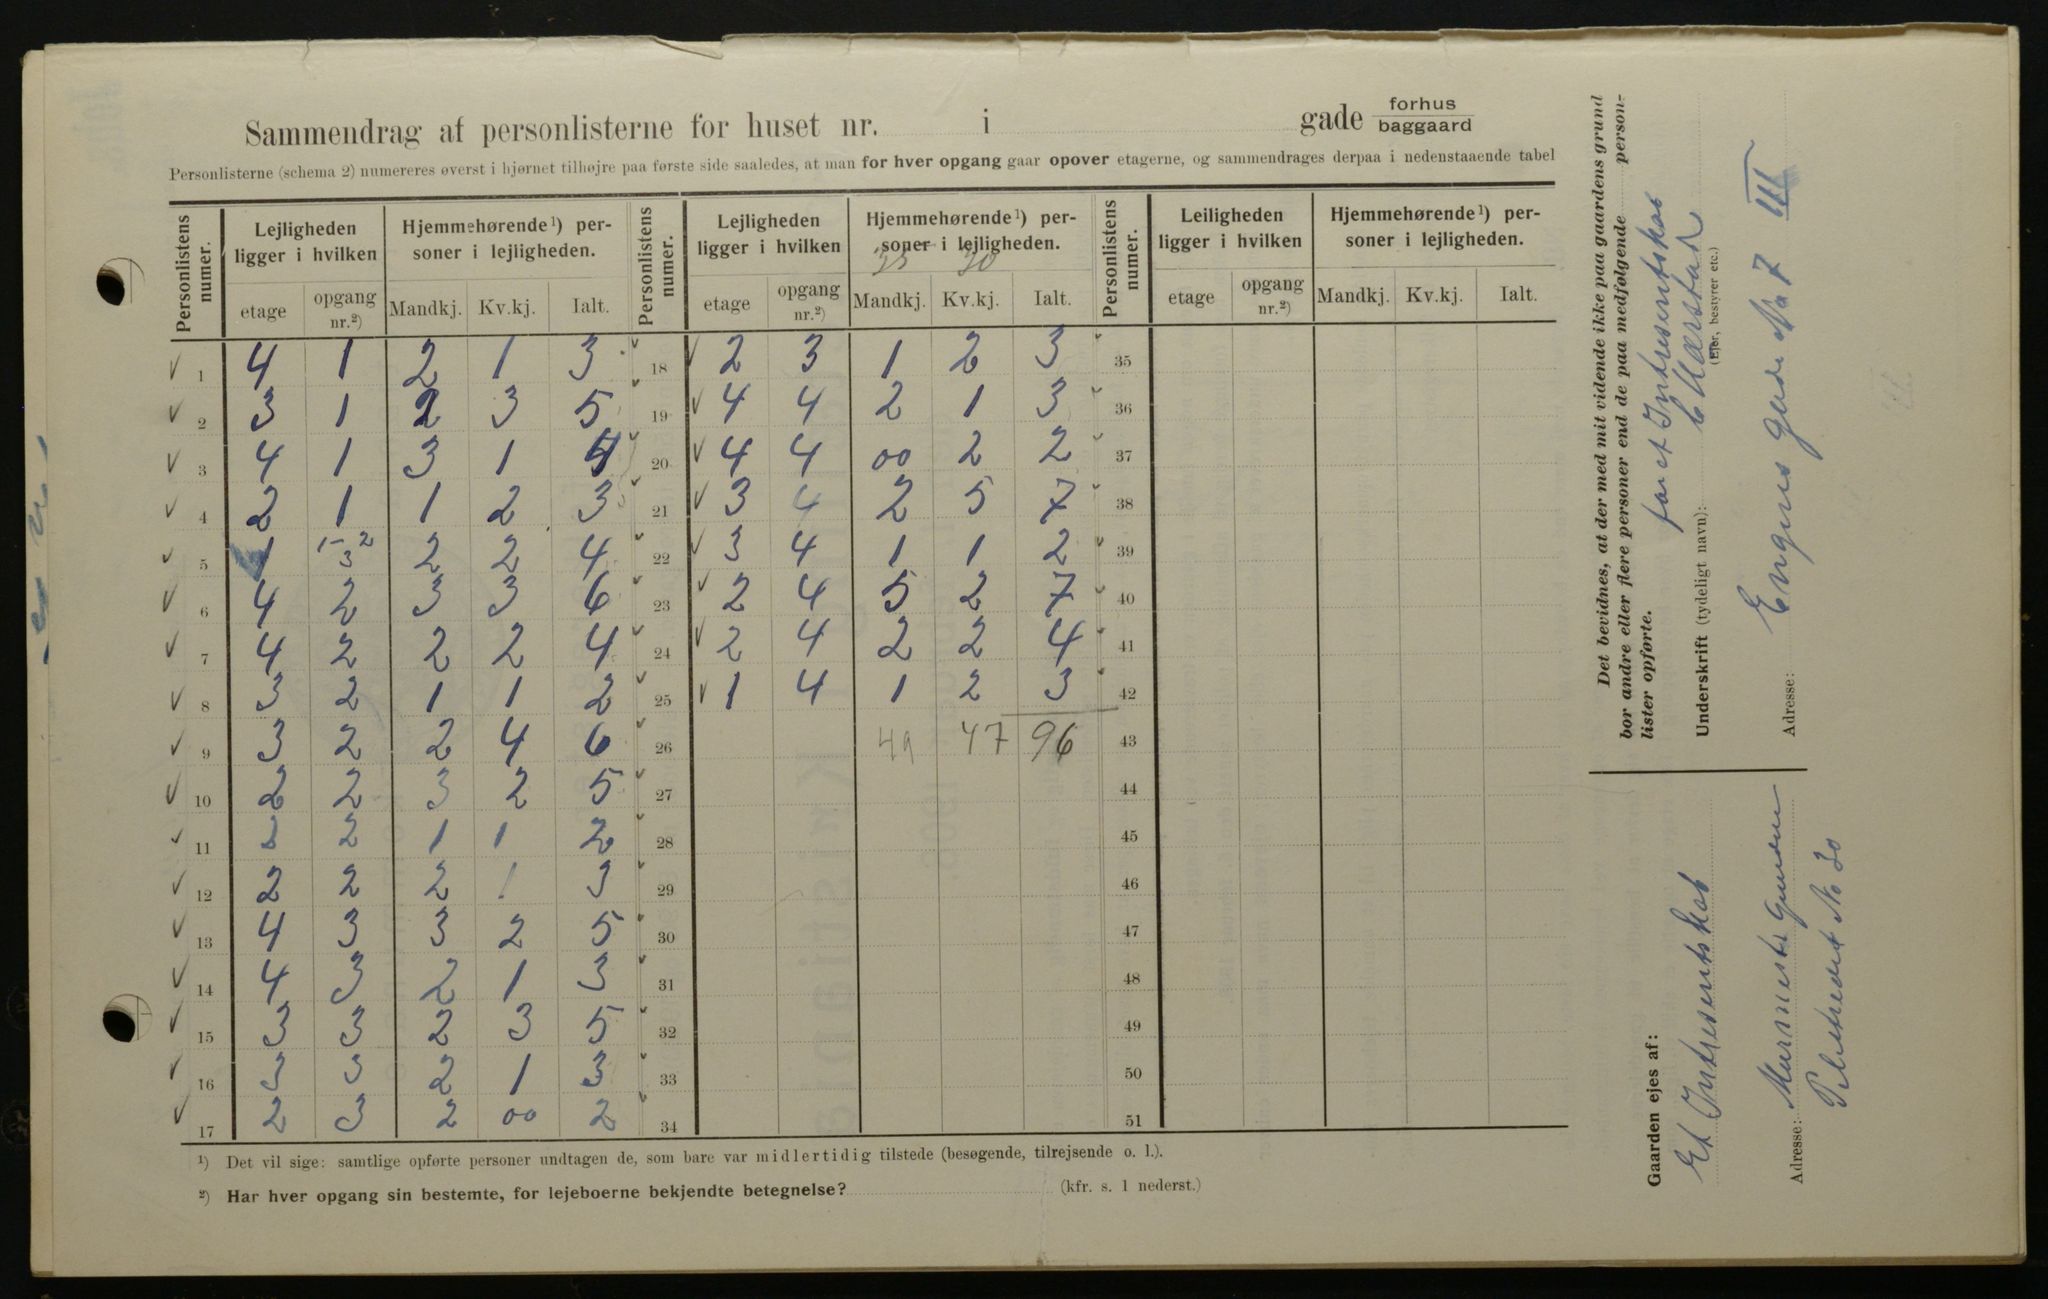 Sammendrag af personlisterne for huset nr. i gade forhus baggaard
Personlisterne (schema 2) numereres øverst i hjørnet tilhøjre paa første side saaledes, at man for hver opgang gaar opover etagerne, og sammendrages derpaa i nedenstaaende tabel
Personlistens numer. Lejligheden ligger i hvilken Hjemmehørende¹) personer i lejligheden. Personlistens numer. Lejligheden ligger i hvilken Hjemmehørende¹) personer i lejligheden. Personlistens numer. Leiligheden ligger i hvilken Hjemmehørende¹) personer i lejligheden.
35 30
etage opgang nr.²) Mandkj. Kv.kj. Ialt. etage opgang nr.²) Mandkj. Kv.kj. Ialt. etage opgang nr.²) Mandkj. Kv.kj. Ialt.
1 4 1 2 1 3 18 2 3 1 2 3 35
2 3 1 2 3 5 19 4 4 2 1 3 36
3 4 1 3 1 4 20 4 4 00 2 2 37
4 2 1 1 2 3 21 3 4 2 5 7 38
5 1 2 2 4 22 3 4 1 1 2 39
6 4 2 3 3 6 23 2 4 5 2 7 40
7 4 2 2 2 4 24 2 4 2 2 4 41
8 3 2 1 1 2 25 1 4 1 2 3 42
9 3 2 2 4 6 26 49 47 96 43
10 2 2 3 2 5 27 44
11 2 2 1 1 2 28 45
12 2 2 2 1 3 29 46
13 4 3 3 2 5 30 47
14 4 3 2 1 3 31 48
15 3 3 2 3 5 32 49
16 3 3 2 1 3 33 50
17 2 3 2 00 2 34 51
¹) Det vil sige: samtlige opførte personer undtagen de, som bare var midlertidig tilstede (besøgende, tilrejsende o. l.).
²) Har hver opgang sin bestemte, for lejeboerne bekjendte betegnelse? (kfr. s. 1 nederst.)
Det bevidnes, at der med mit vidende ikke paa gaardens grund
bor andre eller flere personer end de paa medfølgende person-
lister opførte.
for et Intresentskab
Underskrift (tydeligt navn):
(Ejer, bestyrer etc.)
Adresse: Engens gade No 7 III
Gaarden ejes af:
Et Intresentskab
Adresse: Murmester Gundersen
Pilestredet No 30